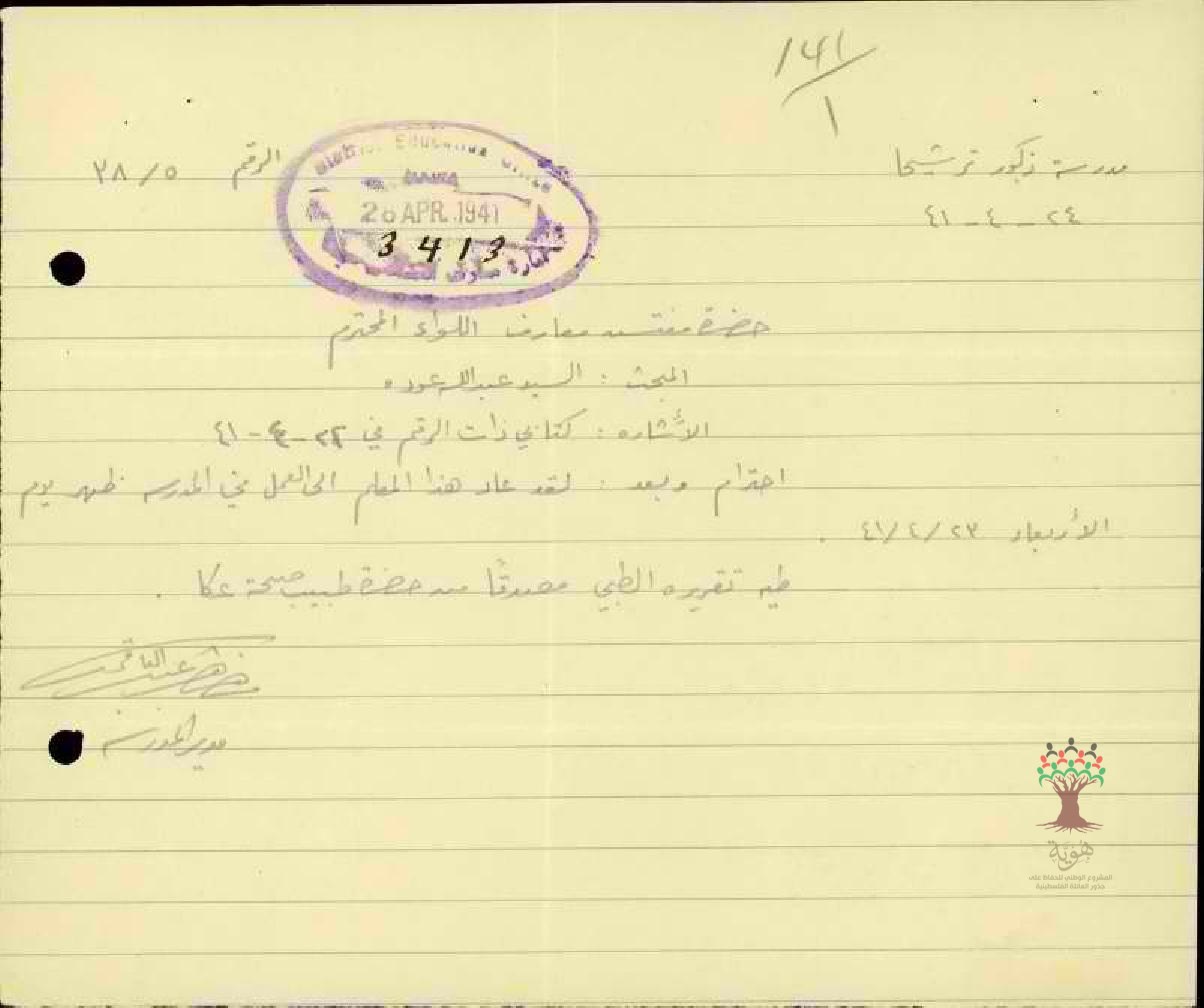 141/1
مدرسة ذكور ترشيحا
الرقم ٢٨/٥
٢٤ - ٤ - ٤١
District Education Office
28 APR. 1941
3413
حضرة مفتش معارف اللواء المحترم
المبحث : السيد عبدالله عوده
الأشاره : كتابي ذات الرقم في ٢٢ - ٤ - ٤١
احترام وبعد : لقد عاد هذا المعلم الى العمل في المدرسه ظهر يوم
الأربعاء ٢٣/٤/٤١ .
طيه تقريره الطبي مصدقًا من حضرة طبيب صحة عكا .
مدير المدرسة
هوية
المشروع الوطني للحفاظ على
جذور العائلة الفلسطينية